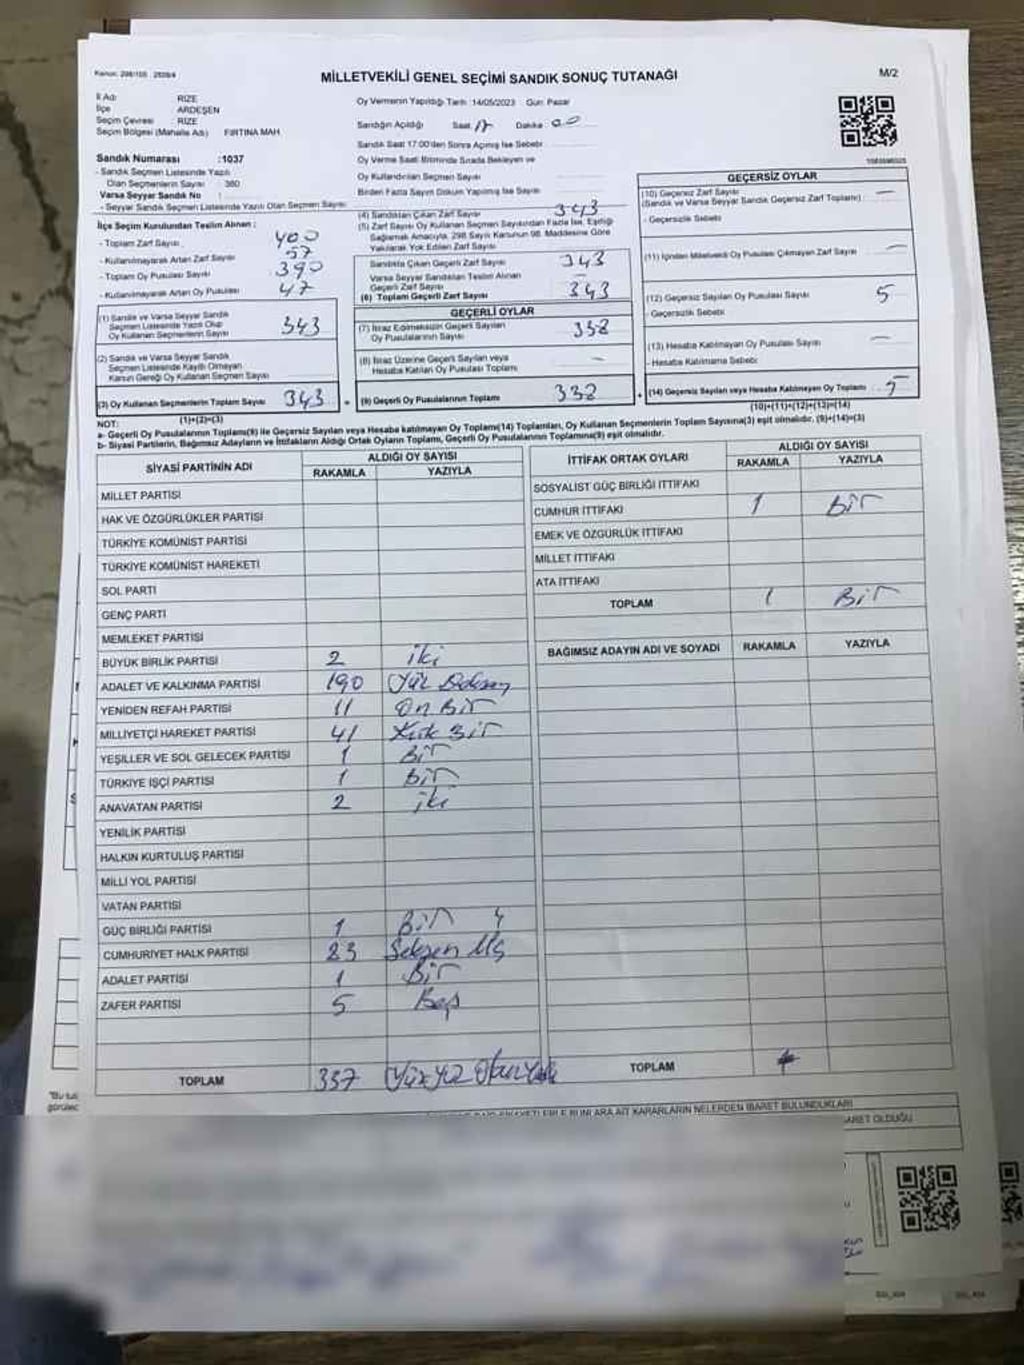 Kanun: 298/105 , 2839/4
MİLLETVEKİLİ GENEL SEÇİMİ SANDIK SONUÇ TUTANAĞI
M/2
İl Adı : RİZE
İlçe : ARDEŞEN
Seçim Çevresi : RİZE
Seçim Bölgesi (Mahalle Adı) : FIRTINA MAH
Oy Vermenin Yapıldığı Tarih: 14/05/2023 Gün: Pazar
Sandığın Açıldığı Saat: 17 Dakika: 00
Sandık Saat 17:00'den Sonra Açılmış İse Sebebi
Oy Verme Saati Bitiminde Sırada Bekleyen ve
Oy Kullandırılan Seçmen Sayısı
Birden Fazla Sayım Döküm Yapılmış İse Sayısı
Sandık Numarası :1037
- Sandık Seçmen Listesinde Yazılı
Olan Seçmenlerin Sayısı : 380
Varsa Seyyar Sandık No :
- Seyyar Sandık Seçmen Listesinde Yazılı Olan Seçmen Sayısı
İlçe Seçim Kurulundan Teslim Alınan :
- Toplam Zarf Sayısı 400
- Kullanılmayarak Artan Zarf Sayısı 57
- Toplam Oy Pusulası Sayısı 390
- Kullanılmayarak Artan Oy Pusulası 47
(1) Sandık ve Varsa Seyyar Sandık
Seçmen Listesinde Yazılı Olup
Oy Kullanan Seçmenlerin Sayısı 343
(2) Sandık ve Varsa Seyyar Sandık
Seçmen Listesinde Kayıtlı Olmayan
Kanun Gereği Oy Kullanan Seçmen Sayısı
(3) Oy Kullanan Seçmenlerin Toplam Sayısı 343
(1)+(2)=(3)
(4) Sandıktan Çıkan Zarf Sayısı 343
(5) Zarf Sayısı Oy Kullanan Seçmen Sayısından Fazla İse, Eşitliği
Sağlamak Amacıyla, 298 Sayılı Kanunun 98. Maddesine Göre
Yakılarak Yok Edilen Zarf Sayısı
Sandıkta Çıkan Geçerli Zarf Sayısı 343
Varsa Seyyar Sandıktan Teslim Alınan
Geçerli Zarf Sayısı —
(6) Toplam Geçerli Zarf Sayısı 343
GEÇERLİ OYLAR
(7) İtiraz Edilmeksizin Geçerli Sayılan
Oy Pusulalarının Sayısı 338
(8) İtiraz Üzerine Geçerli Sayılan veya
Hesaba Katılan Oy Pusulası Toplamı —
(9) Geçerli Oy Pusulalarının Toplamı 338
GEÇERSİZ OYLAR
(10) Geçersiz Zarf Sayısı —
(Sandık ve Varsa Seyyar Sandık Geçersiz Zarf Toplamı)
- Geçersizlik Sebebi
(11) İçinden Milletvekili Oy Pusulası Çıkmayan Zarf Sayısı —
(12) Geçersiz Sayılan Oy Pusulası Sayısı 5
- Geçersizlik Sebebi
(13) Hesaba Katılmayan Oy Pusulası Sayısı —
- Hesaba Katılmama Sebebi
(14) Geçersiz Sayılan veya Hesaba Katılmayan Oy Toplamı 5
(10)+(11)+(12)+(13)=(14)
NOT:
a- Geçerli Oy Pusulalarının Toplamı(9) ile Geçersiz Sayılan veya Hesaba katılmayan Oy Toplamı(14) Toplamları, Oy Kullanan Seçmenlerin Toplam Sayısına(3) eşit olmalıdır. (9)+(14)=(3)
b- Siyasi Partilerin, Bağımsız Adayların ve İttifakların Aldığı Ortak Oyların Toplamı, Geçerli Oy Pusulalarının Toplamına(9) eşit olmalıdır.
SİYASİ PARTİNİN ADI ALDIĞI OY SAYISI
RAKAMLA YAZIYLA
MİLLET PARTİSİ
HAK VE ÖZGÜRLÜKLER PARTİSİ
TÜRKİYE KOMÜNİST PARTİSİ
TÜRKİYE KOMÜNİST HAREKETİ
SOL PARTİ
GENÇ PARTİ
MEMLEKET PARTİSİ
BÜYÜK BİRLİK PARTİSİ 2 iki
ADALET VE KALKINMA PARTİSİ 190 Yüz Doksan
YENİDEN REFAH PARTİSİ 11 On Bir
MİLLİYETÇİ HAREKET PARTİSİ 41 Kırk Bir
YEŞİLLER VE SOL GELECEK PARTİSİ 1 Bir
TÜRKİYE İŞÇİ PARTİSİ 1 Bir
ANAVATAN PARTİSİ 2 iki
YENİLİK PARTİSİ
HALKIN KURTULUŞ PARTİSİ
MİLLİ YOL PARTİSİ
VATAN PARTİSİ
GÜÇ BİRLİĞİ PARTİSİ 1 Bir
CUMHURİYET HALK PARTİSİ 83 Seksen Üç
ADALET PARTİSİ 1 Bir
ZAFER PARTİSİ 5 Beş
TOPLAM 337
İTTİFAK ORTAK OYLARI ALDIĞI OY SAYISI
RAKAMLA YAZIYLA
SOSYALİST GÜÇ BİRLİĞİ İTTİFAKI
CUMHUR İTTİFAKI 1 Bir
EMEK VE ÖZGÜRLÜK İTTİFAKI
MİLLET İTTİFAKI
ATA İTTİFAKI
TOPLAM 1 Bir
BAĞIMSIZ ADAYIN ADI VE SOYADI RAKAMLA YAZIYLA
TOPLAM
"Bu tut
görülec
ARA AİT KARARLARIN NELERDEN İBARET BULUNDUKLARI
ARET OLDUĞU